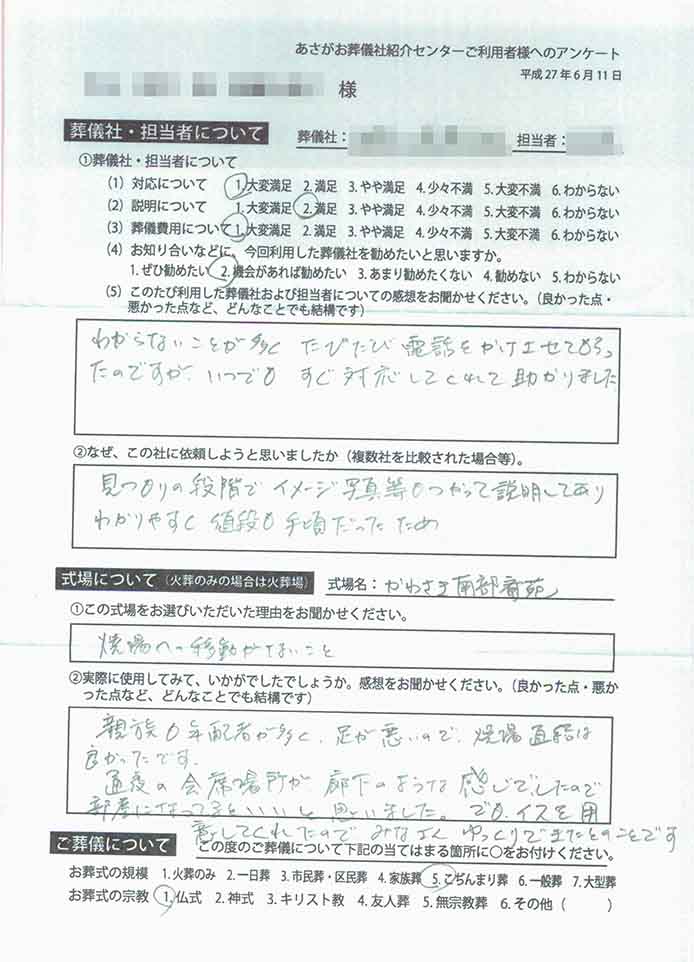 あさがお葬儀社紹介センターご利用者様へのアンケート
平成27年6月11日
様
葬儀社・担当者について 葬儀社： 担当者：
①葬儀社・担当者について
(1) 対応について 1.大変満足 2.満足 3.やや満足 4.少々不満 5.大変不満 6.わからない
(2) 説明について 1.大変満足 2.満足 3.やや満足 4.少々不満 5.大変不満 6.わからない
(3) 葬儀費用について 1.大変満足 2.満足 3.やや満足 4.少々不満 5.大変不満 6.わからない
(4) お知り合いなどに、今回利用した葬儀社を勧めたいと思いますか。
1.ぜひ勧めたい 2.機会があれば勧めたい 3.あまり勧めたくない 4.勧めない 5.わからない
(5) このたび利用した葬儀社および担当者についての感想をお聞かせください。（良かった点・
悪かった点など、どんなことでも結構です）
わからないことが多く たびたび 電話をかけさせてもらっ
たのですが、いつでも すぐ対応してくれて助かりました
②なぜ、この社に依頼しようと思いましたか（複数社を比較された場合等）。
見つもりの段階で イメージ写真等もつかって説明してあり
わかりやすく 値段も手頃だったため
式場について（火葬のみの場合は火葬場） 式場名：かわさき南部斎苑
①この式場をお選びいただいた理由をお聞かせください。
焼場への移動がないこと
②実際に使用してみて、いかがでしたでしょうか。感想をお聞かせください。（良かった点・悪か
った点など、どんなことでも結構です）
親族も年配者が多く、足が悪いので、焼場直結は
良かったです。
通夜の会席場所が 廊下のような感じでしたので
部屋になってるといいと思いました。でも、イスを用
意してくれたので みなよく ゆっくりできたとのことです
ご葬儀について この度のご葬儀について下記の当てはまる箇所に○をお付けください。
お葬式の規模 1.火葬のみ 2.一日葬 3.市民葬・区民葬 4.家族葬 5.こぢんまり葬 6.一般葬 7.大型葬
お葬式の宗教 1.仏式 2.神式 3.キリスト教 4.友人葬 5.無宗教葬 6.その他（ ）